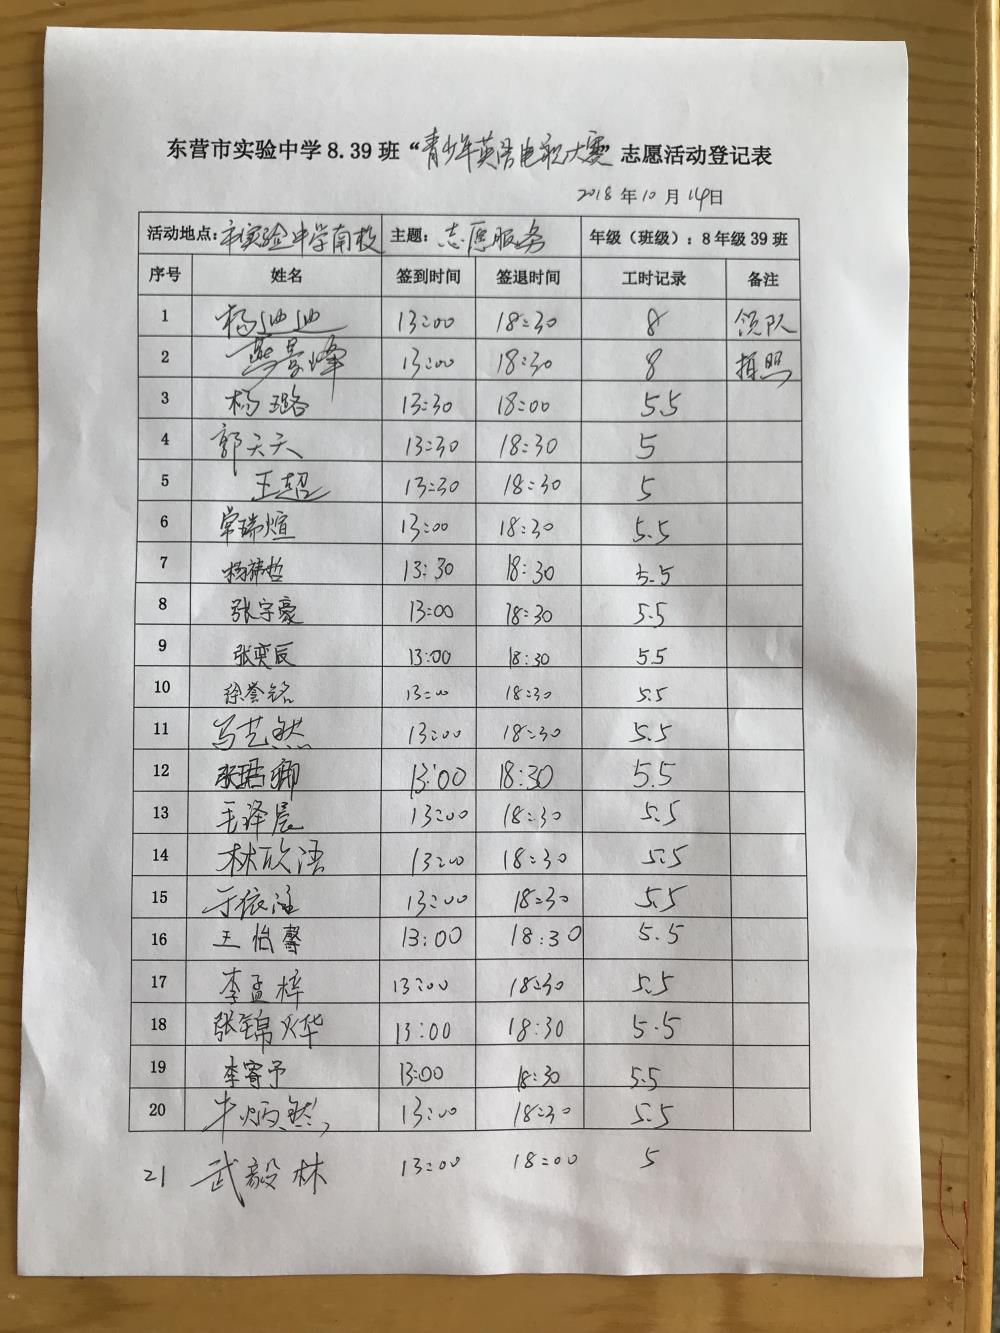 东营市实验中学8.39班“青少年英语电视大赛”志愿活动登记表
2018年10月14日
活动地点：市实验中学南校 主题：志愿服务 年级（班级）：8年级39班
序号 姓名 签到时间 签退时间 工时记录 备注
1 杨迪迪 13:00 18:30 8 领队
2 燕景峰 13:00 18:30 8 拍照
3 杨璐 13:30 18:00 5.5
4 郭天天 13:30 18:30 5
5 王超 13:30 18:30 5
6 常瑞煊 13:00 18:30 5.5
7 杨祺哲 13:30 18:30 5.5
8 张宇豪 13:00 18:30 5.5
9 张奕辰 13:00 18:30 5.5
10 徐誉铭 13:00 18:30 5.5
11 马艺然 13:00 18:30 5.5
12 张珺卿 13:00 18:30 5.5
13 王泽晨 13:00 18:30 5.5
14 林欣语 13:00 18:30 5.5
15 于依涵 13:00 18:30 5.5
16 王怡馨 13:00 18:30 5.5
17 李孟梓 13:00 18:30 5.5
18 张锦烨 13:00 18:30 5.5
19 李寄予 13:00 18:30 5.5
20 牛炳然 13:00 18:30 5.5
21 武毅林 13:00 18:00 5